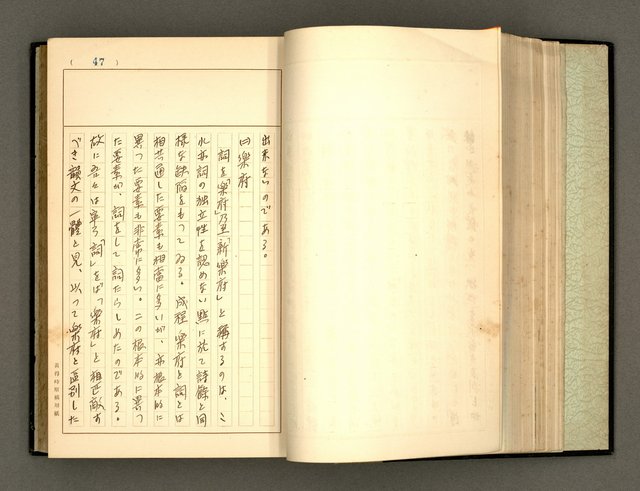 ( 47 )
出来ないのである。
㈣ 樂府
詞を「樂府」乃至「新樂府」と稱するのは、こ
れ亦詞の独立性を認めない點に於て詩餘と同
様な缺陥をもつてゐる。成程樂府と詞とは
相共通した要素も相當に多いが、亦根本的に
異つた要素も非常に多い。この根本的に異つ
た要素が、詞をして詞たらしめたのである。
故に吾々は寧ろ「詞」をば「樂府」と相匹敵す
べき韻文の一體と見、以つて樂府と区別した
黃得時原稿用紙